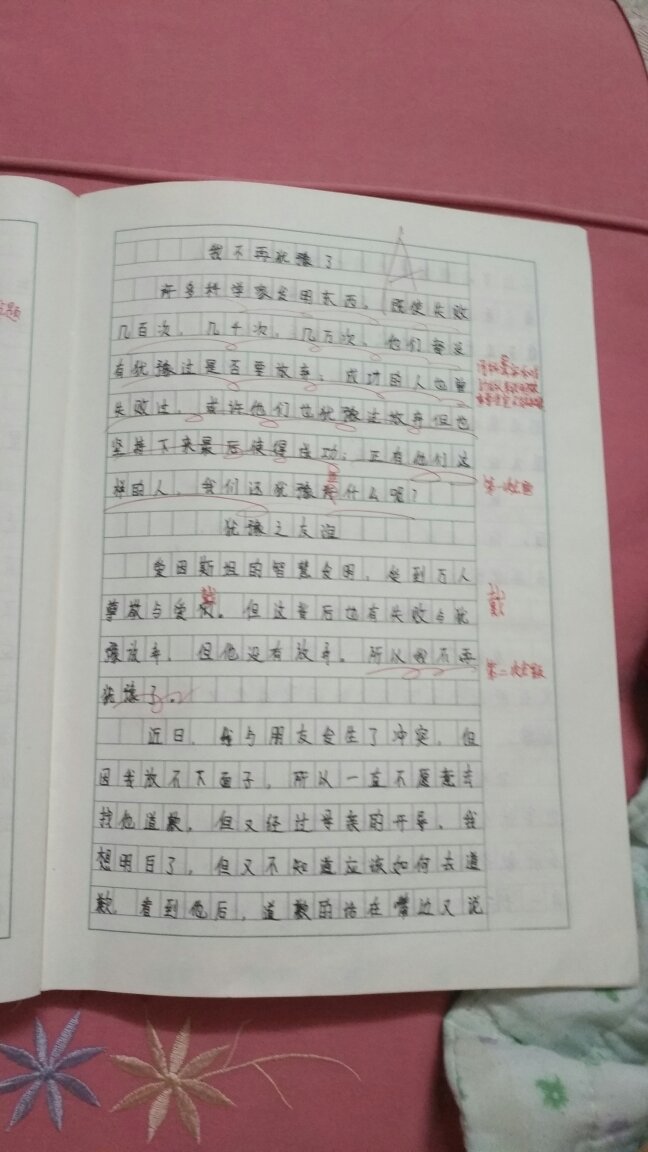 我不再犹豫了
许多科学家发明东西，既使失败
几百次，几千次，几万次，他们都没
有犹豫过是否要放弃，成功的人也曾
失败过，或许他们也犹豫过放弃但也
坚持下来最后使得成功，正有他们这
样的人，我们还犹豫什么呢？
犹豫之友谊
爱因斯坦的智慧发明，受到万人
尊敬与爱戴。但这背后也有失败与犹
豫放弃，但他没有放弃。所以我不再
犹豫了。
近日，我与朋友发生了冲突，但
因我放不下面子，所以一直不愿意去
找他道歉，但又经过母亲的开导，我
想明白了，但又不知道应该如何去道
歉，看到他后，道歉的话在嘴边又说
第一次点题
戴
第二次点题